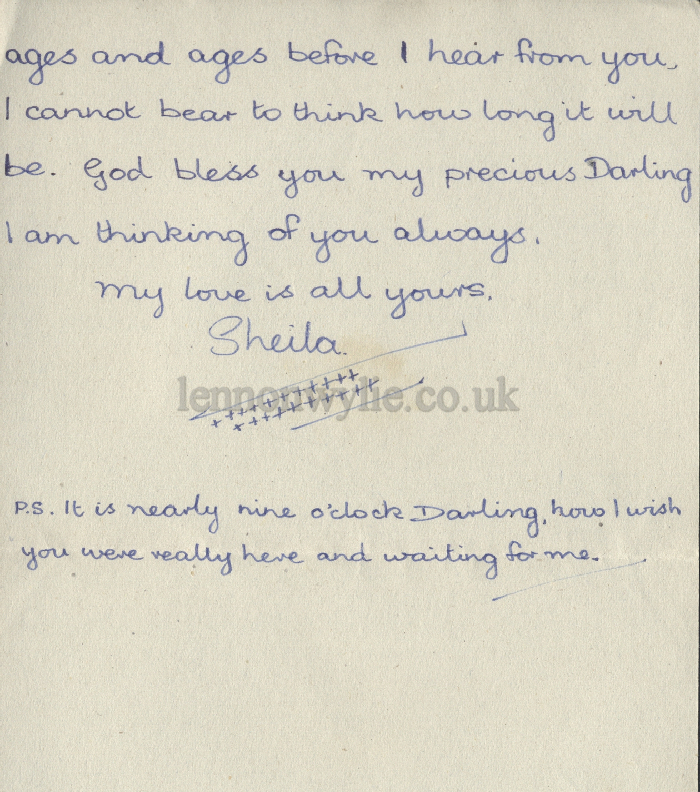 ages and ages before I hear from you,
I cannot bear to think how long it will
be. God bless you my precious Darling
I am thinking of you always.
My love is all yours.
Sheila.
+++++++++++++
lennonwylie.co.uk
+++++++++++++
P.S. It is nearly nine o'clock Darling, how I wish
you were really here and waiting for me.